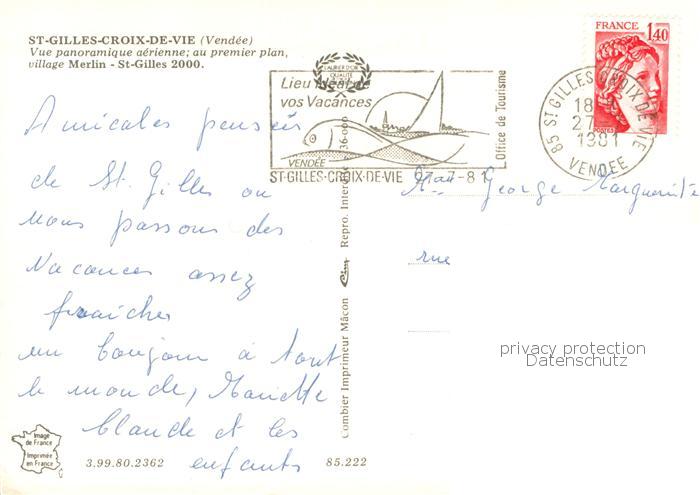 ST-GILLES-CROIX-DE-VIE (Vendée)
Vue panoramique aérienne; au premier plan,
village Merlin - St-Gilles 2000.
LAURIER D'OR
QUALITÉ
Lieu Idéal de
vos Vacances
VENDÉE
ST-GILLES-CROIX-DE-VIE
Office de Tourisme
FRANCE
1,40
POSTES
85 ST GILLES CROIX DE VIE
18
27
1981
VENDEE
Amicales pensées
de St. Gilles ou
nous passons des
vacances assez
fraiches
un bonjour à tout
le monde, Mariette
Claude et les
enfants
George Marguerite
rue
privacy protection
Datenschutz
Combier Imprimeur Mâcon
Cim
Repro. Interdite
Image
de France
Imprimée
en France
3.99.80.2362
85.222